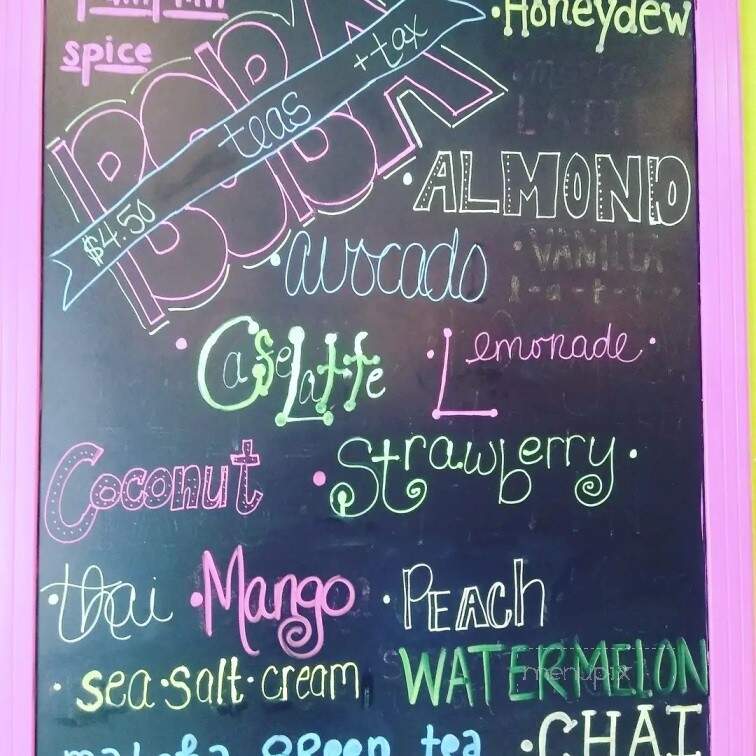 spice
BOBA
teas
$4.50
+ tax
• Honeydew
• ALMOND
• avocado
• VANILLA
• Cafe Latte
• Lemonade •
Coconut
• Strawberry •
• thai
• Mango
• PEACH
• sea • salt • cream
WATERMELON
menupix
matcha green tea
• CHAI